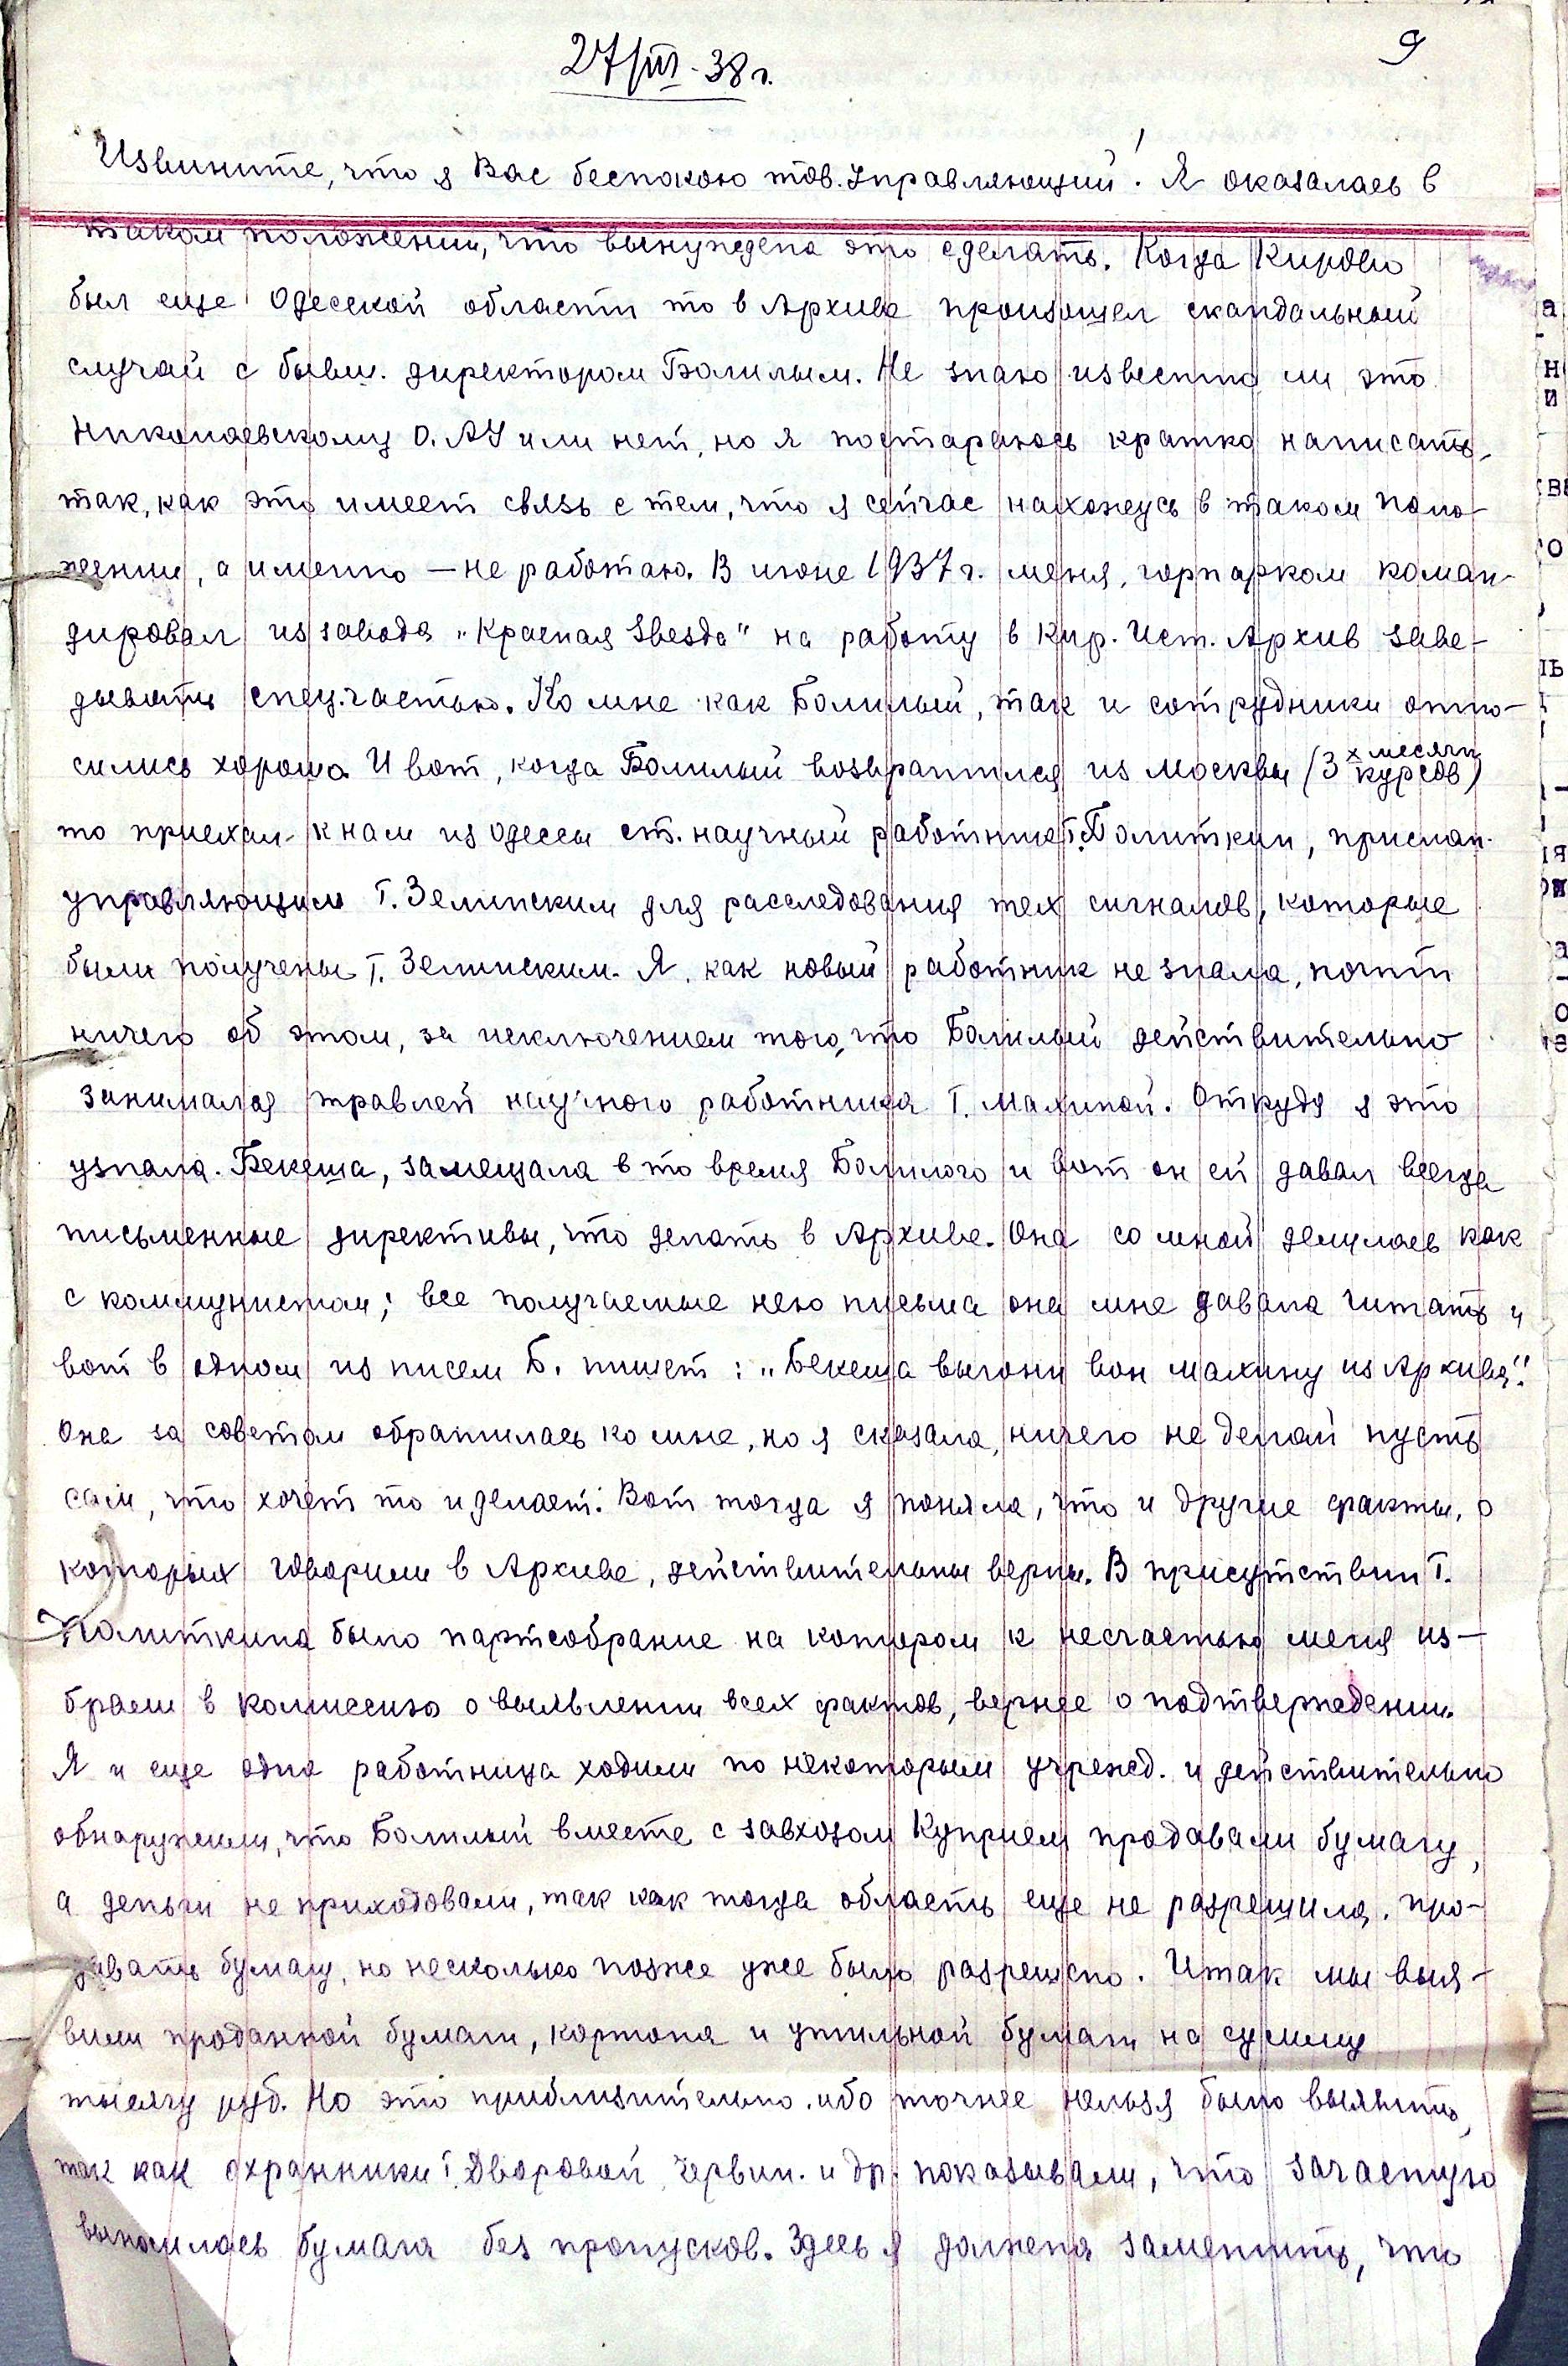 27/III-38 г.
9
Извините, что я Вас беспокою тов. Управляющий! Я оказалась в
таком положении, что вынуждена это сделать. Когда Кирово
был еще Одесской области то в Архиве произошел скандальный
случай с бывш. директором Балилым. Не знаю известно ли это
Николаевскому О.АУ или нет, но я постараюсь кратко написать,
так, как это имеет связь с тем, что я сейчас нахожусь в таком поло-
жении, а именно — не работаю. В июне 1937 г. меня, горпарком коман-
дировал из завода "Красная Звезда" на работу в Кир. Ист. Архив заве-
дывать спец.частью. Ко мне как Балилый, так и сотрудники отно-
сились хорошо. И вот, когда Балилый возвратился из Москвы (3х месячн курсов)
то приехал к нам из Одессы ст. научный работник т. Политкин, прислан.
управляющим Т. Зелинским для расследования тех сигналов, которые
были получены Т. Зелинским. Я, как новый работник не знала, почти
ничего об этом, за исключением того, что Балилый действительно
занимался травлей научного работника Т. Малиной. Откуда я это
узнала. Бекеша, замещала в то время Балилого и вот он ей давал всегда
письменные директивы, что делать в Архиве. Она со мной делилась как
с коммунистом; все получаемые нею письма она мне давала читать и
вот в одном из писем Б. пишет: "Бекеша выгони вон Малину из Архива"!
Она за советом обратилась ко мне, но я сказала, ничего не делай пусть
сам, что хочет то и делает. Вот тогда я поняла, что и другие факты, о
которых говорили в Архиве, действительны верны. В присутствии Т.
Политкина было партсобрание на котором к несчастью меня из-
брали в комиссию о выявлении всех фактов, вернее о подтверждении.
Я и еще одна работница ходили по некоторым учрежд. и действительно
обнаружили, что Балилый вместе с завхозом Куприем продавали бумагу,
а деньги не приходовали, так как тогда область еще не разрешила. про-
давать бумагу, но несколько позже уже было разрешено. Итак мы выя-
вили проданной бумаги, картона и утильной бумаги на сумму
тысячу руб. Но это приблизительно. ибо точнее нельзя было выявить,
так как охранники т. Дворовой, Червин. и др. показывали, что зачастую
выносилась бумага без пропусков. Здесь я должна заметить, что